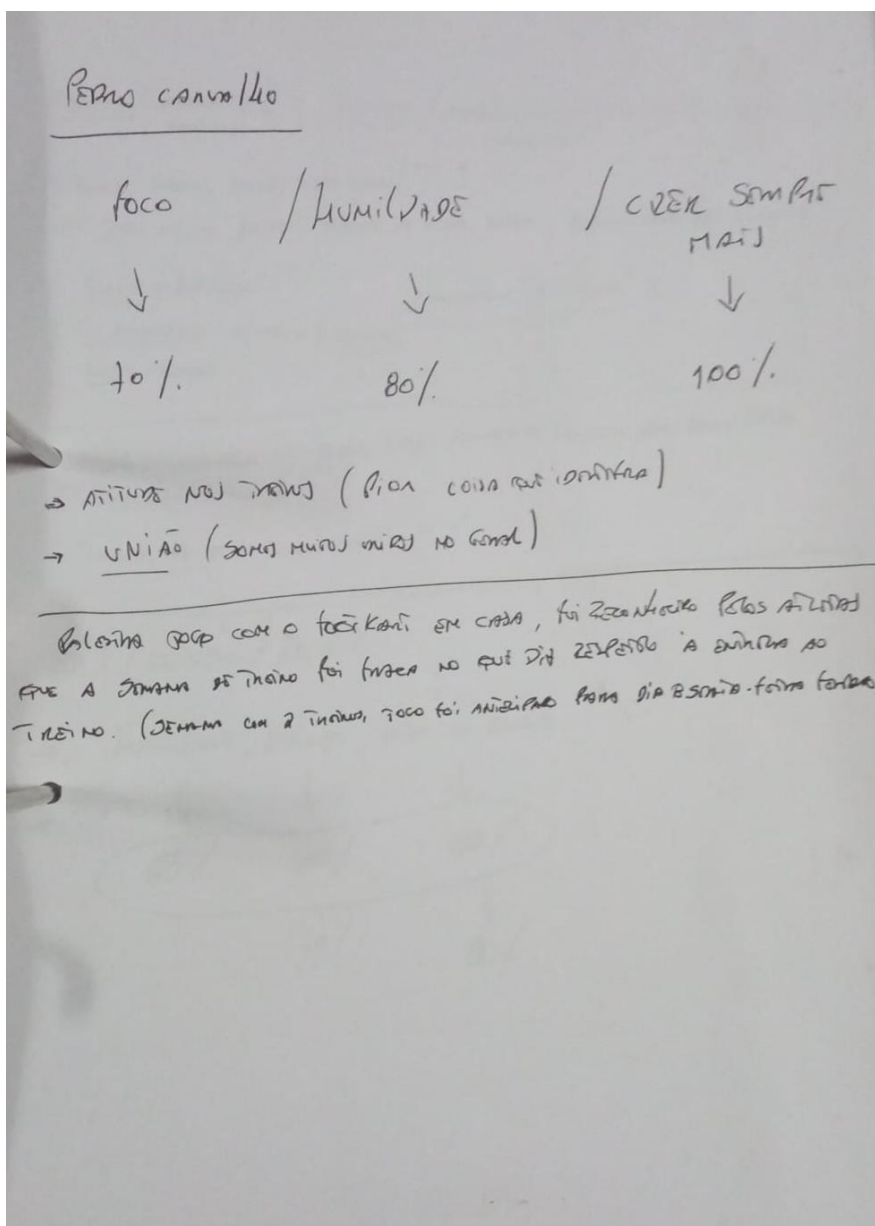 PEDRO CARVALHO
FOCO / HUMILDADE / CRER SEMPRE
MAIS
↓ ↓ ↓
70% 80% 100%
→ ATITUDE NOS TREINOS (PIOR COISA QUE IDENTIFICA)
→ UNIÃO (SOMOS MUITOS UNIDOS NO GERAL)
JOGO COM O EM CASA, FOI RECONHECIDO PELOS ATLETAS
QUE A SEMANA DE TREINO FOI FRACA NO QUE DIZ RESPEITO À ENTREGA AO
TREINO. (SEMANA COM 2 TREINOS, JOGO FOI ANTECIPADO PARA DIA